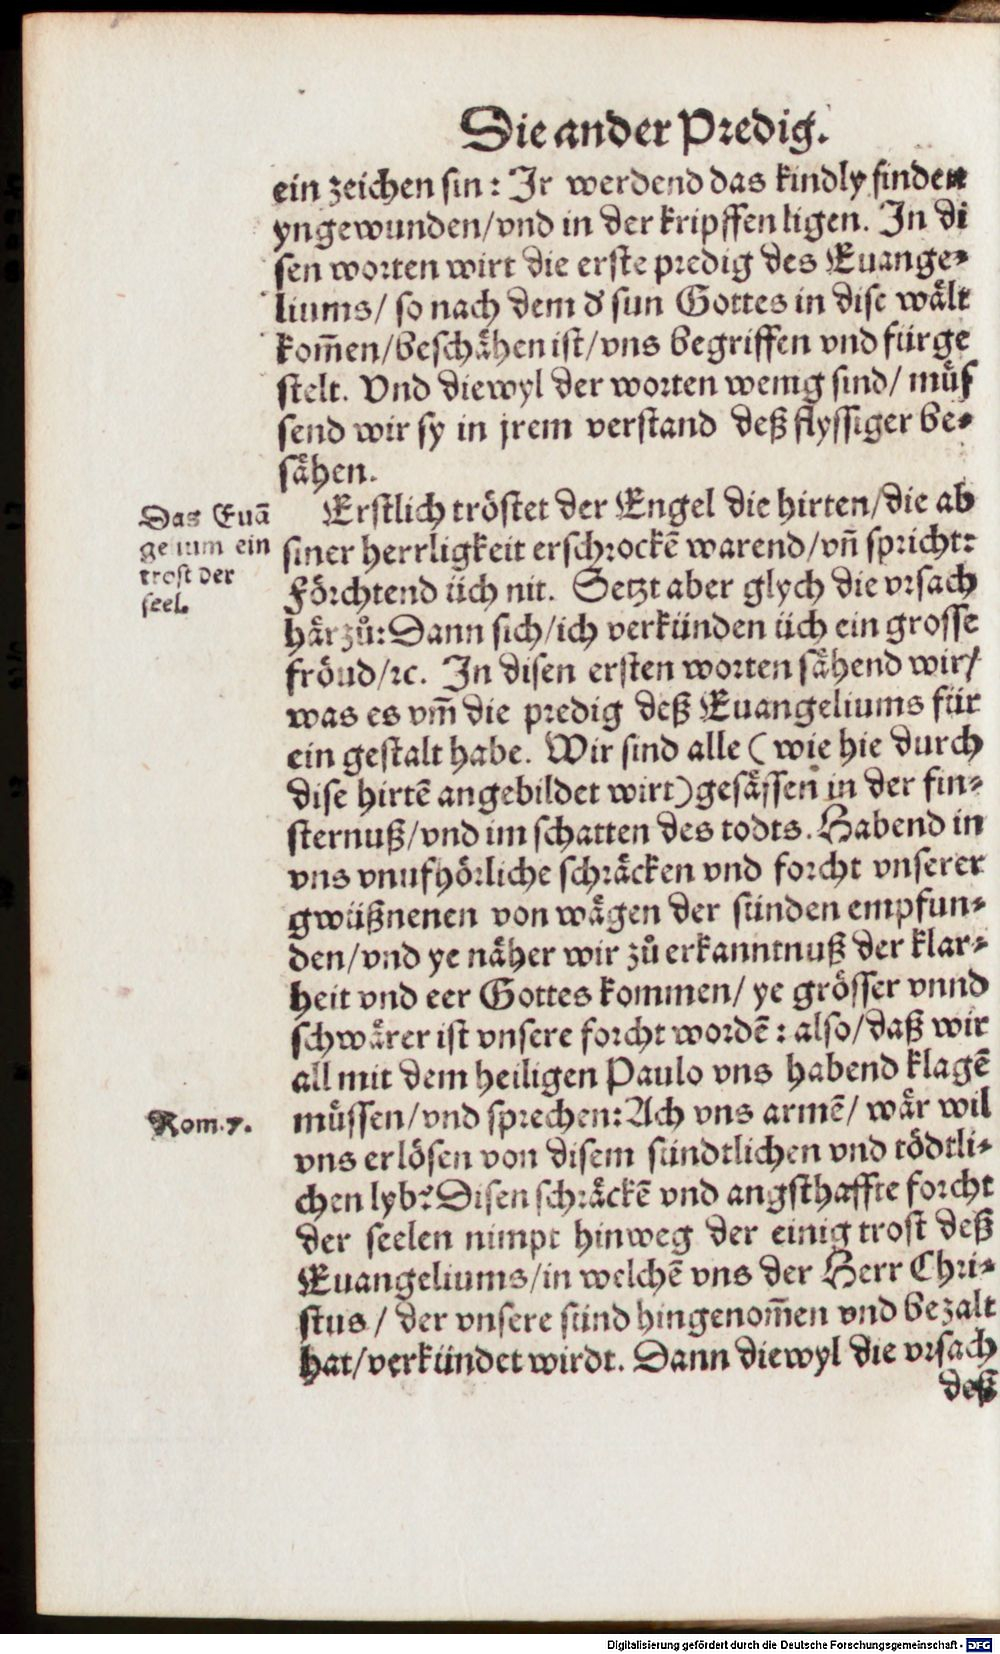 Die ander Predig.
ein zeichen sin: Jr werdend das kindly finden
yngewunden/vnd in der kripffen ligen. Jn di
sen worten wirt die erste predig des Euange-
liums/ so nach dem d' sun Gottes in dise wält
kom̄en/beschähen ist/vns begriffen vnd fürge
stelt. Vnd diewyl der worten wenig sind/ müs
send wir sy in jrem verstand deß flyssiger be-
sähen.
Erstlich tröstet der Engel die hirten/die ab
siner herrligkeit erschrockē warend/vn̄ spricht:
Förchtend üch nit. Setzt aber glych die vrsach
härzů: Dann sich/ich verkünden üch ein grosse
fröud/ꝛc. Jn disen ersten worten sähend wir/
was es vm̄ die predig deß Euangeliums für
ein gestalt habe. Wir sind alle (wie hie durch
dise hirtē angebildet wirt) gesässen in der fin-
sternuß/vnd im schatten des todts. Habend in
vns vnufhörliche schräcken vnd forcht vnserer
gwüßnenen von wägen der sünden empfun-
den/vnd ye näher wir zů erkanntnuß der klar-
heit vnd eer Gottes kommen/ ye grösser vnnd
schwärer ist vnsere forcht wordē: also/daß wir
all mit dem heiligen Paulo vns habend klagē
müssen/vnd sprechen: Ach vns armē/ wär wil
vns erlösen von disem sündtlichen vnd tödtli-
chen lyb? Disen schräckē vnd angsthaffte forcht
der seelen nimpt hinweg der einig trost deß
Euangeliums/in welchē vns der Herr Chri-
stus/ der vnsere sünd hingenom̄en vnd bezalt
hat/verkündet wirdt. Dann diewyl die vrsach
deß
Das Euā
gelium ein
trost der
seel.
Rom.7.
Digitalisierung gefördert durch die Deutsche Forschungsgemeinschaft - DFG